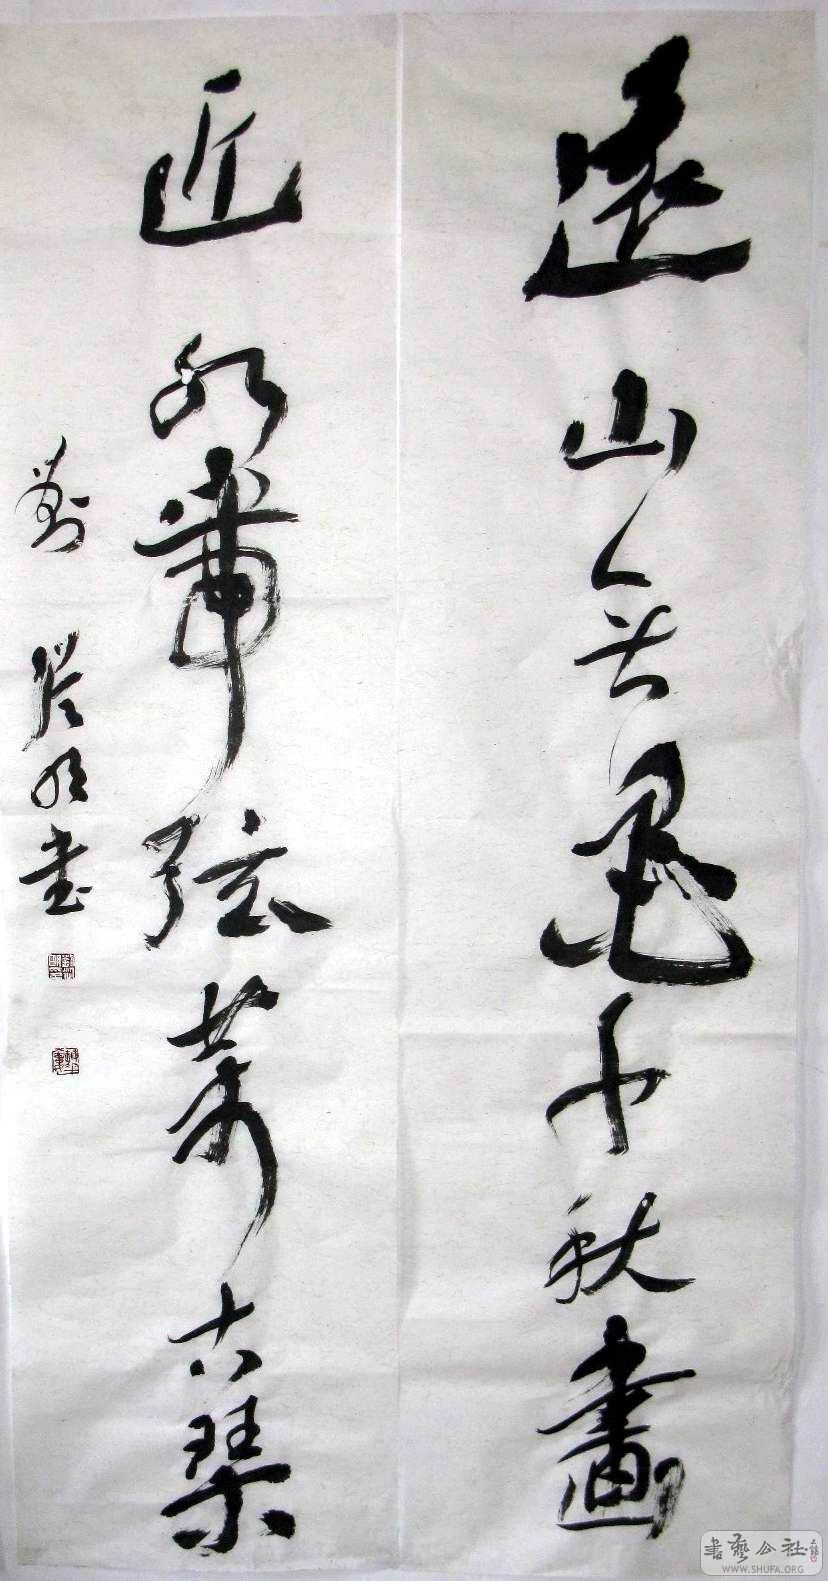 遠山無墨千秋畫
近水無弦萬古琴
劉明書
書藝公社
WWW.SHUFA.ORG